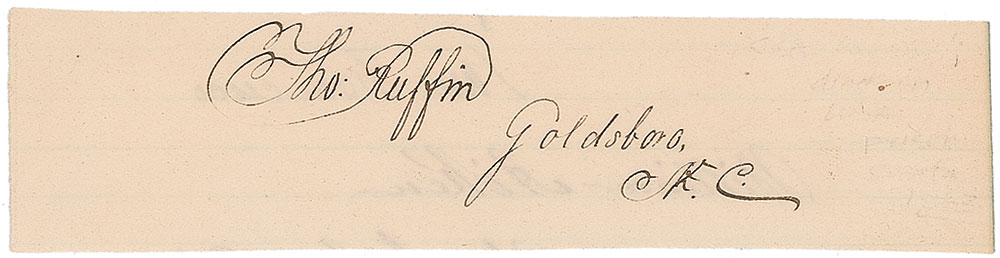 Tho: Ruffin
Goldsboro,
N. C.